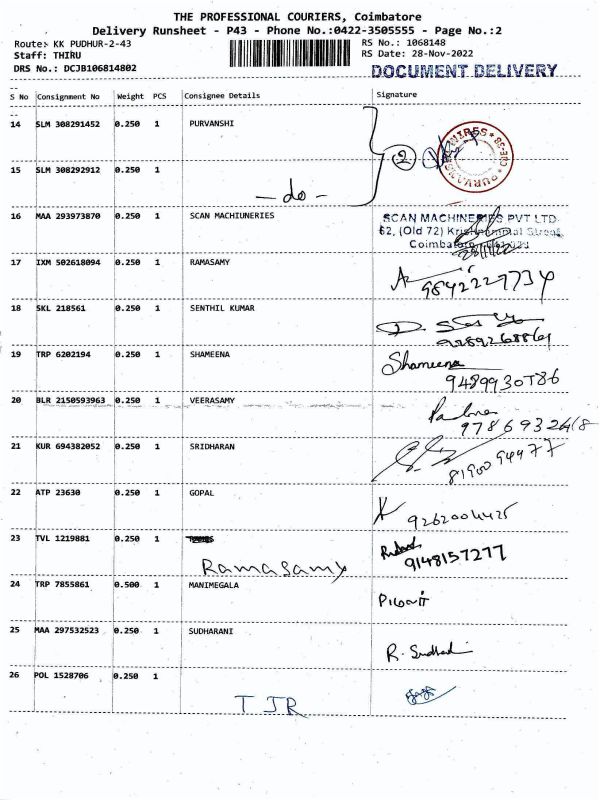 THE PROFESSIONAL COURIERS, Coimbatore
Delivery Runsheet - P43 - Phone No.:0422-3505555 - Page No.:2
Route: KK PUDHUR-2-43 RS No.: 1068148
Staff: THIRU RS Date: 28-Nov-2022
DRS No.: DCJB106814802 DOCUMENT DELIVERY
S No Consignment No Weight PCS Consignee Details Signature
14 SLM 308291452 0.250 1 PURVANSHI
2
15 SLM 308292912 0.250 1
- do -
16 MAA 293973870 0.250 1 SCAN MACHIUNERIES SCAN MACHINERIES PVT LTD
62, (Old 72)
28/11/22
17 IXM 502618094 0.250 1 RAMASAMY
9842227734
18 SKL 218561 0.250 1 SENTHIL KUMAR
19 TRP 6202194 0.250 1 SHAMEENA Shameena
20 BLR 2150593963 0.250 1 VEERASAMY
21 KUR 694382052 0.250 1 SRIDHARAN
8190094477
22 ATP 23630 0.250 1 GOPAL
23 TVL 1219881 0.250 1
Ramasamy 9148157277
24 TRP 7855861 0.500 1 MANIMEGALA
25 MAA 297532523 0.250 1 SUDHARANI
26 POL 1528706 0.250 1
T JR